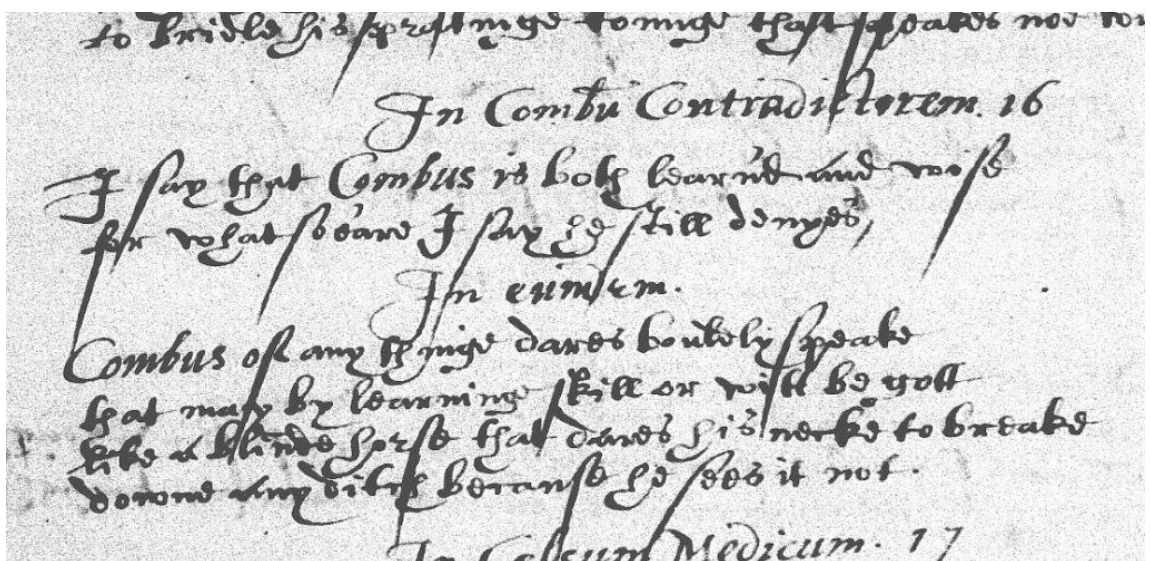 to bridle his tounge that speakes noe
In Combū Contradictorem. 16
I say that Combus is both learn'd and wise
for whatsoeare I say he still denyes,
In eundem.
Combus of any thinge dares bouldly speake
that may by learninge skill or witt be gott
like a blinde horse that dares his necke to breake
downe any ditch because he sees it not.
In Medicum. 17